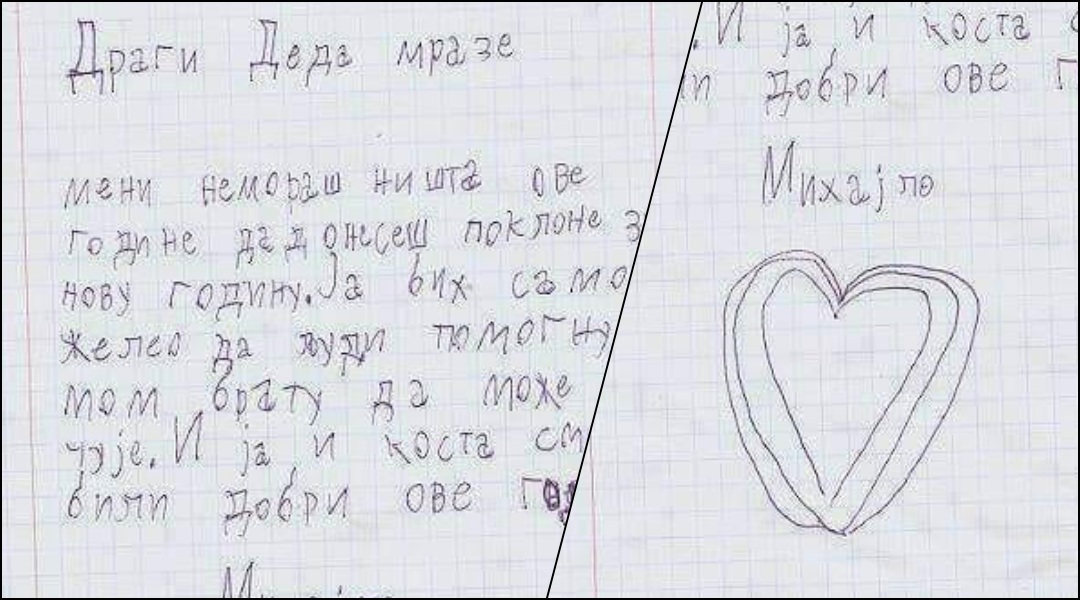 Драги Деда мразе
мени немораш ништа ове
године да донесеш поклоне з
нову годину. Ја бих само
желео да људи помогну
мом брату да може
чује. И ја и коста см
били добри ове
. И ја и коста
добри ове
Михајло